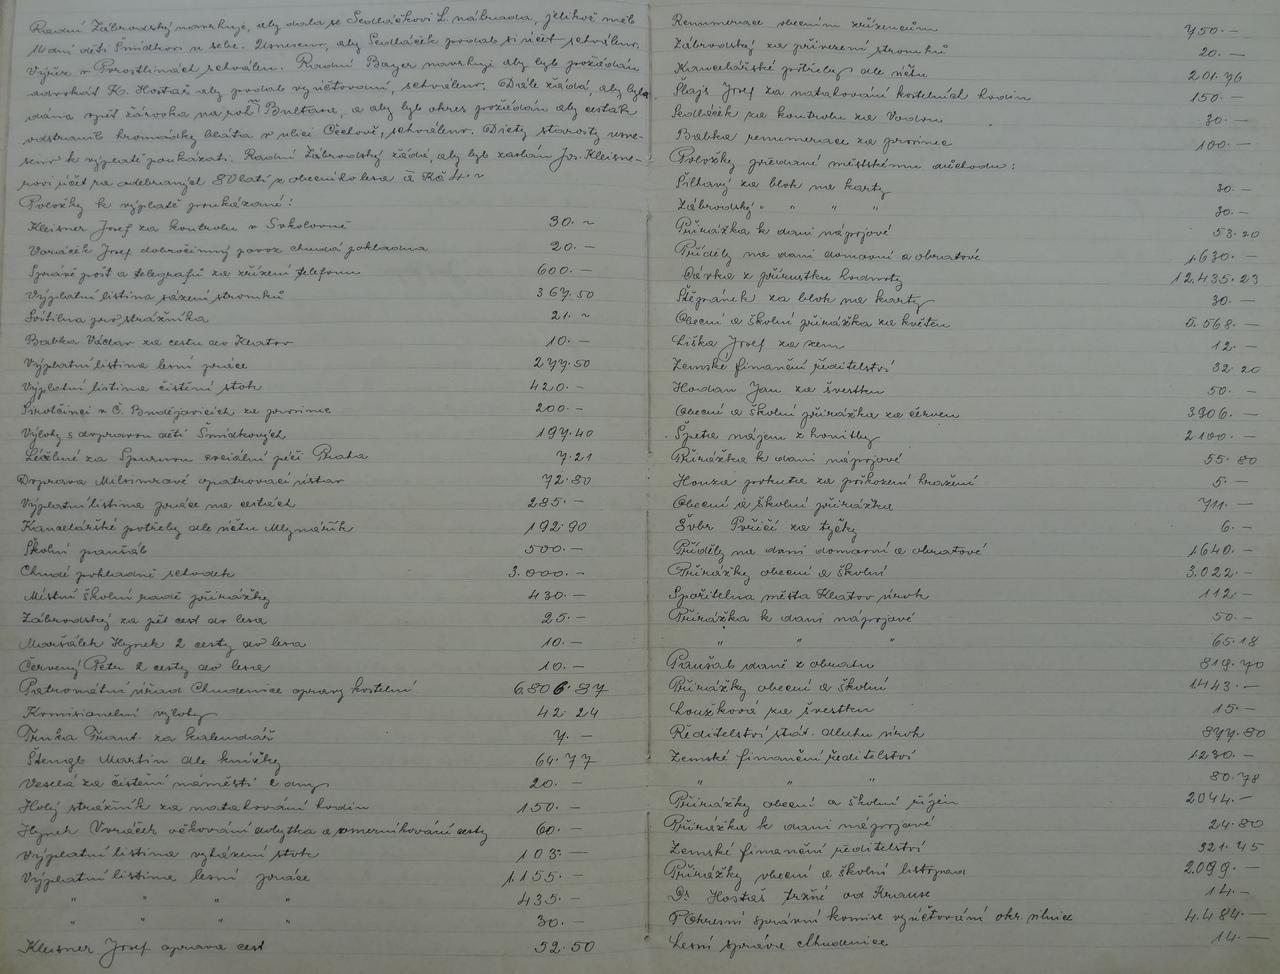 Radní Zábrodský navrhuje, aby dala se Sedláčkovi L. náhrada, jelikož měl
11 dní děti Šmídkovi u sebe. Usneseno, aby Sedláček podal si účet schváleno.
Výřez v Porostlinách schválen. Radní Bayer navrhuje aby byl požádán
advokát K. Hostaš aby podal vyúčtování, schváleno. Dále žádá, aby byla
dána opět žárovka na roh Bultasa, a aby byl okres požádán aby cesták
odstranil hromádky bláta v ulici Očelově, schváleno. Diety starosty usne-
seno k výplatě poukázati. Radní Zábrodský žádá, aby byl zaslán Jos. Kleisne-
rovi účet za odebraných 80 latí z obecního lesa à Kč 4.~
Položky k výplatě poukázané:
Kleisner Josef za kontrolu v Sokolovně 30.~
Voráček Josef dobročinný povoz chudá pokladna 20.—
Správě pošt a telegrafů za zřízení telefonu 600.—
Výplatní listina sázení stromků 367.50
Svítilna pro strážníka 21.~
Babka Václav za cestu do Klatov 10.—
Výplatní listina lesní práce 277.50
Výplatní listina čistění stok 420.—
Sirotčinci v Č. Budějovicích za prosinec 200.—
Výlohy s dopravou dětí Šmídkových 197.40
Léčebné za sociální péči Praha 7.21
Doprava opatrovací ústav 72.80
Výplatní listina práce na cestách 285.—
Kancelářské potřeby dle účtu Mlynařík 192.90
Školní paušál 500.—
Chudé pokladně schodek 3.000.—
Místní školní radě přirážky 430.—
Zábrodský za pět cest do lesa 25.—
Maršálek Hynek 2 cesty do lesa 10.—
Červený Petr 2 cesty do lesa 10.—
Patronátní úřad Chudenice opravy kostelní 6.806.87
Komisionelní výlohy 42.24
Trnka Frant. za kalendář 7.—
Štengl Martin dle knížky 64.77
Veselá za čistění náměstí 2 dny 20.—
Holý strážník za natahování hodin 150.—
Hynek Voráček očkování dobytka a cesty 60.—
Výplatní listina vyházení stok 103.—
Výplatní listina lesní práce 1.155.—
" " " " 435.—
" " " " 30.—
Kleisner Josef oprava cest 52.50
Remunerace obecním zřízencům 750.—
Zábrodský za přivezení stromků 20.—
Kancelářské potřeby dle účtu 201.76
Šlajs Josef za natahování kostelních hodin 150.—
Sedláček za kontrolu za Vodou 30.—
Babka remunerace za prosinec 100.—
Položky předané městskému důchodu:
Šiltavý za blok na karty 30.—
Zábrodský " " " " 30.—
Přirážka k dani nápojové 53.20
Příděly na dani domovní a obratové 1.630.—
Dávka z přírustku hodnoty 12.435.23
Štěpánek za blok na karty 30.—
Obecní a školní přirážka za květen 5.568.—
Liška Josef za zem 12.—
Zemské finanční ředitelství 32.20
Hordan Jan za švestku 50.—
Obecní a školní přirážka za červen 3906.—
Špeta nájem z honitby 2100.—
Přirážka k dani nápojové 55.80
Houza pokuta za poškození hražení 5.—
Obecní a školní přirážka 711.—
Švbr Poříčí za tyčky 6.—
Příděly na dani domovní a obratové 1640.—
Přirážky obecní a školní 3.022.—
Spořitelna města Klatov úrok 112.—
Přirážka k dani nápojové 50.—
" " " 65.18
Paušál daně z obratu 819.70
Přirážky obecní a školní 1443.—
Loužková za švestku 15.—
Ředitelství stát. dluhu úrok 877.80
Zemské finanční ředitelství 1230.—
" " " 80.78
Přirážky obecní a školní říjen 2044.—
Přirážka k dani nápojové 24.80
Zemské finanční ředitelství 321.45
Přirážky obecní a školní listopad 2.099.—
Dr Hostaš tržné od Krause 14.—
Okresní správní komise vyúčtování okr. silnice 4.484.—
Lesní správa Chudenice 14.—